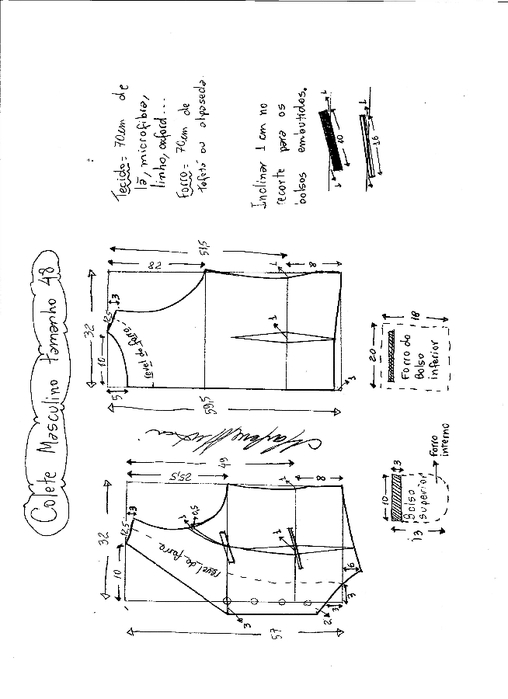 Colete Masculino tamanho 48
Tecido = 70cm de
lã, microfibra,
linho, oxford...
Forro = 70cm de
Tafetá ou
Inclinar 1 cm no
recorte para os
bolsos embutidos.
1
10
1
1
16
1
32
10
12,5
3
57
25,5
49
revel de forro
0,5
1
1
1
8
3
2
3
6
32
5
10
12,5
3
28
51,5
59,5
revel do forro
1
1
8
1
10
3
Bolso
superior
13
Forro
interno
20
18
Forro do
Bolso
inferior